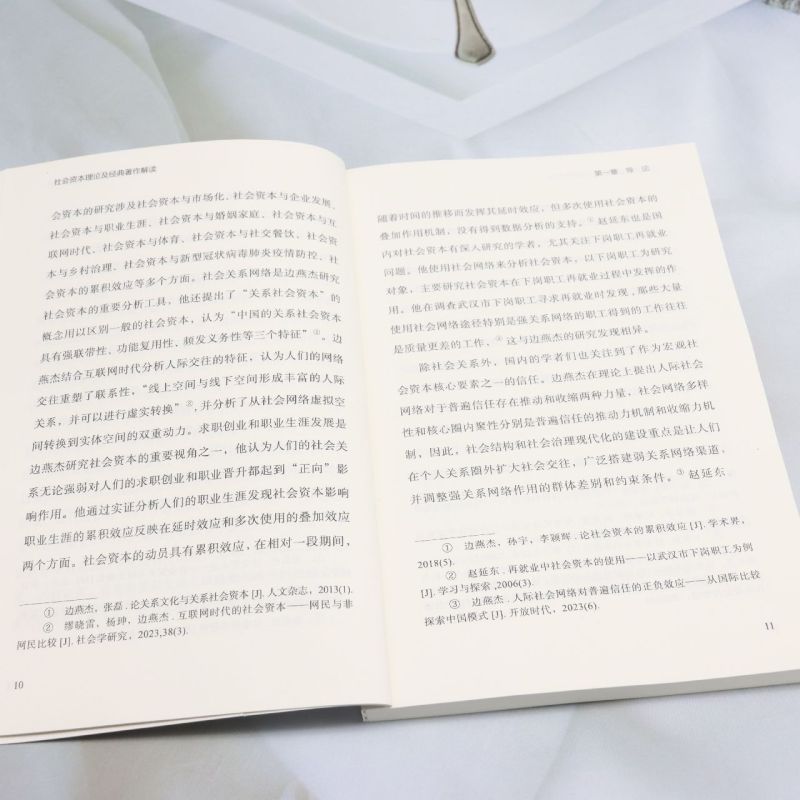 社会资本理论及经典著作解读
会资本的研究涉及社会资本与市场化、社会资本与企业发展、
社会资本与职业生涯、社会资本与婚姻家庭、社会资本与互
联网时代、社会资本与体育、社会资本与社交餐饮、社会资
本与乡村治理、社会资本与新型冠状病毒肺炎疫情防控、社
会资本的累积效应等多个方面。社会关系网络是边燕杰研究
社会资本的重要分析工具，他还提出了“关系社会资本”的
概念用以区别一般的社会资本，认为“中国的关系社会资本
具有强联带性、功能复用性、频发义务性等三个特征”①。边
燕杰结合互联网时代分析人际交往的特征，认为人们的网络
交往重塑了联系性，“线上空间与线下空间形成丰富的人际
关系，并可以进行虚实转换”②，并分析了从社会网络虚拟空
间转换到实体空间的双重动力。求职创业和职业生涯发展是
边燕杰研究社会资本的重要视角之一，他认为人们的社会关
系无论强弱对人们的求职创业和职业晋升都起到“正向”影
响作用。他通过实证分析人们的职业生涯发现社会资本影响
职业生涯的累积效应反映在延时效应和多次使用的叠加效应
两个方面。社会资本的动员具有累积效应，在相对一段期间，
① 边燕杰，张磊.论关系文化与关系社会资本[J].人文杂志，2013(1).
② 缪晓雷，杨珅，边燕杰.互联网时代的社会资本——网民与非
网民比较[J].社会学研究，2023,38(3).
10
第一章 导 论
随着时间的推移而发挥其延时效应，但多次使用社会资本的
叠加作用机制，没有得到数据分析的支持。①赵延东也是国
内对社会资本有深入研究的学者，尤其关注下岗职工再就业
问题。他使用社会网络来分析社会资本，以下岗职工为研究
对象，主要研究社会资本在下岗职工再就业过程中发挥的作
用。他在调查武汉市下岗职工寻求再就业时发现，那些大量
使用社会网络途径特别是强关系网络的职工得到的工作往往
是质量更差的工作，②这与边燕杰的研究发现相异。
除社会关系外，国内的学者们也关注到了作为宏观社
会资本核心要素之一的信任。边燕杰在理论上提出人际社会
网络对于普遍信任存在推动和收缩两种力量，社会网络多样
性和核心圈内聚性分别是普遍信任的推动力机制和收缩力机
制，因此，社会结构和社会治理现代化的建设重点是让人们
在个人关系圈外扩大社会交往，广泛搭建弱关系网络渠道，
并调整强关系网络作用的群体差别和约束条件。③赵延东
① 边燕杰，孙宇，李颖晖.论社会资本的累积效应[J].学术界，
2018(5).
② 赵延东.再就业中社会资本的使用——以武汉市下岗职工为例
[J].学习与探索,2006(3).
③ 边燕杰.人际社会网络对普遍信任的正负效应——从国际比较
探索中国模式[J].开放时代，2023(6).
11